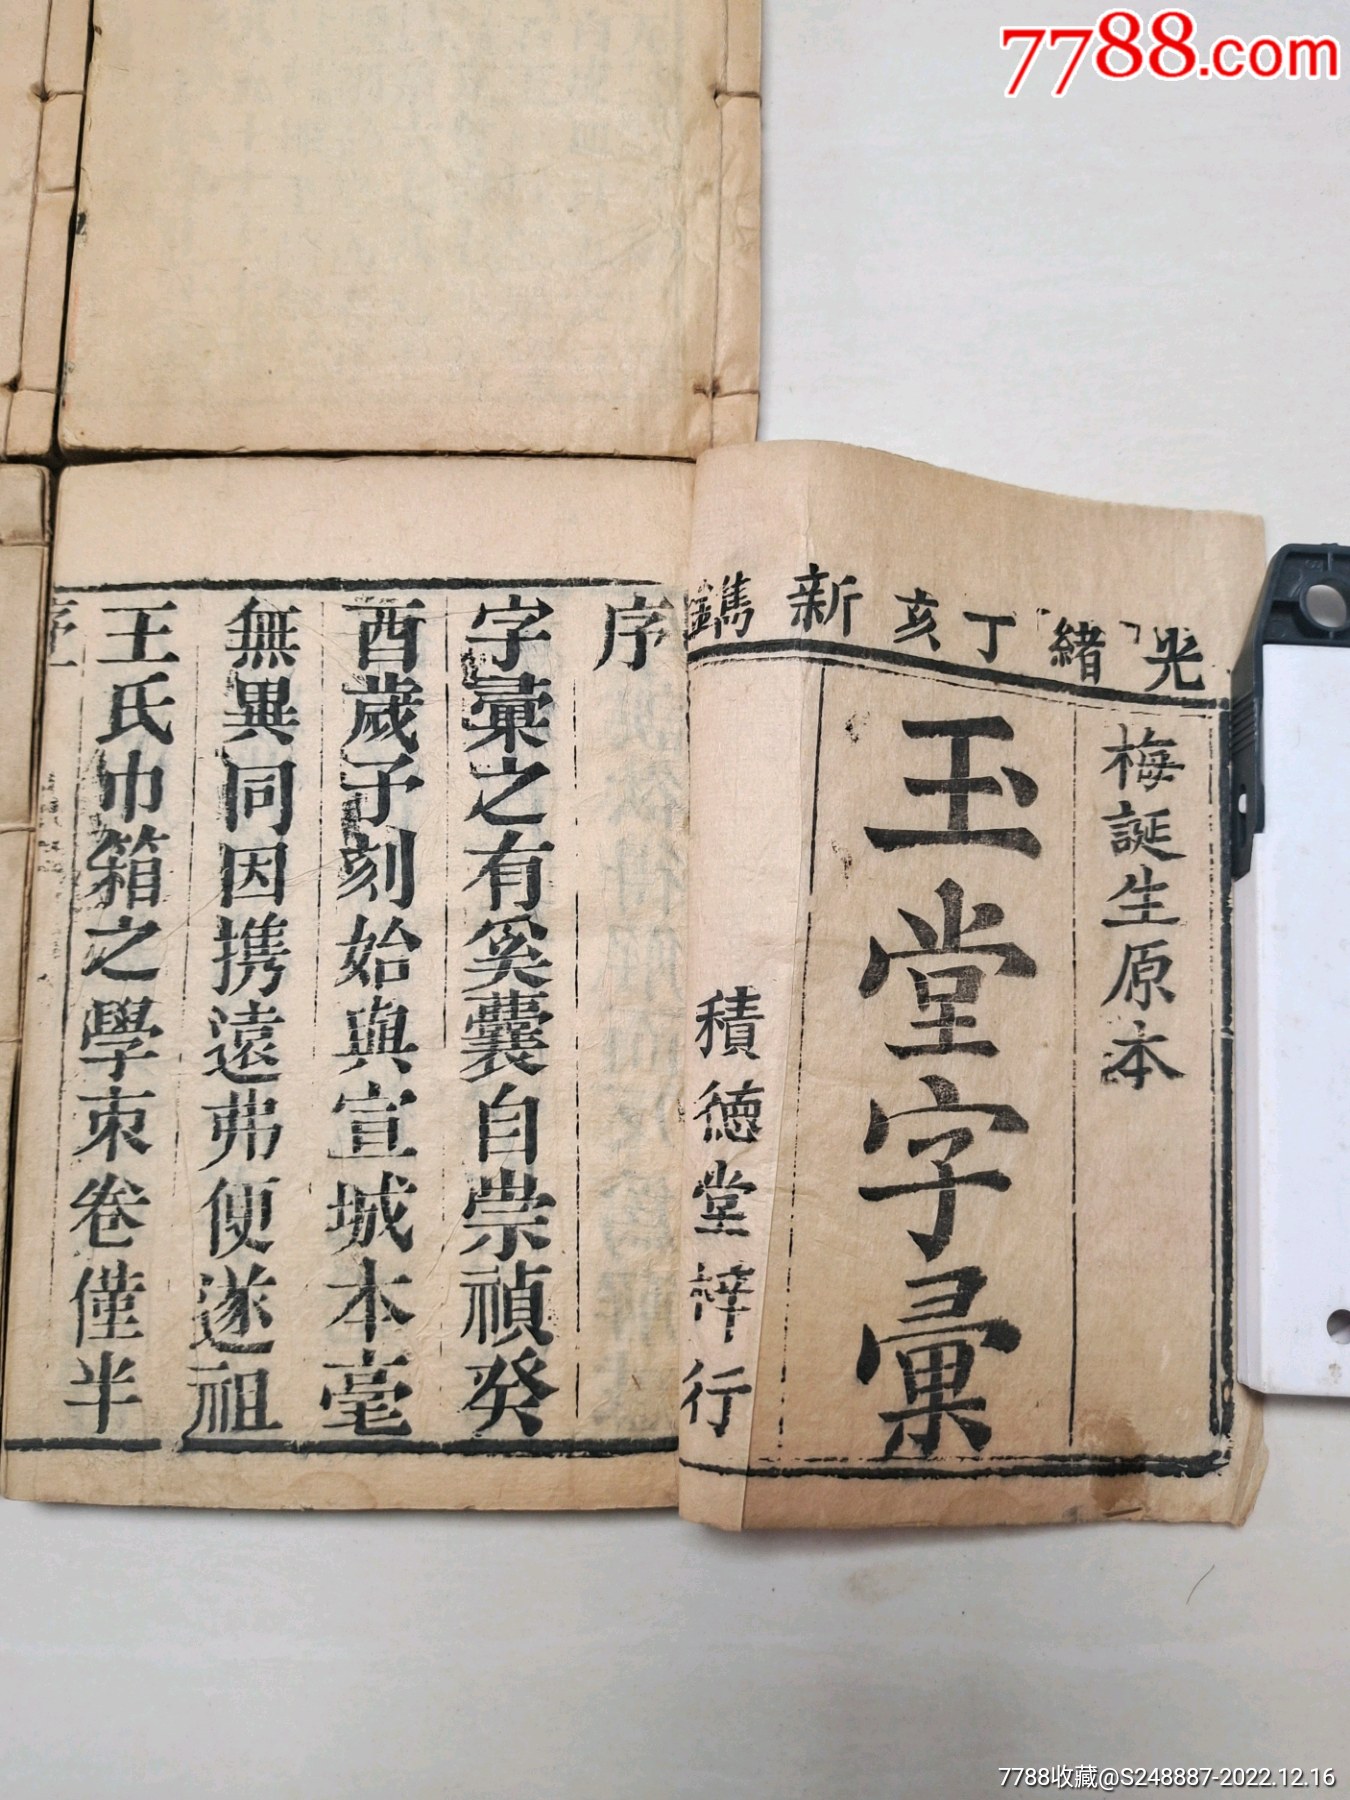 7788.com
光緒丁亥新鐫
梅誕生原本
玉堂字彙
積德堂梓行
序
字彙之有奚囊自崇禎癸
酉歲予刻始與宣城本毫
無異同因携遠弗便遂祖
王氏巾箱之學束卷僅半
7788收藏@S248887-2022.12.16